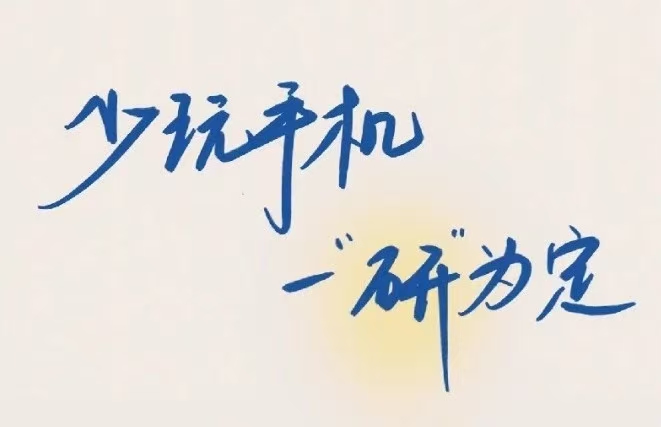 少玩手机
一“研”为定